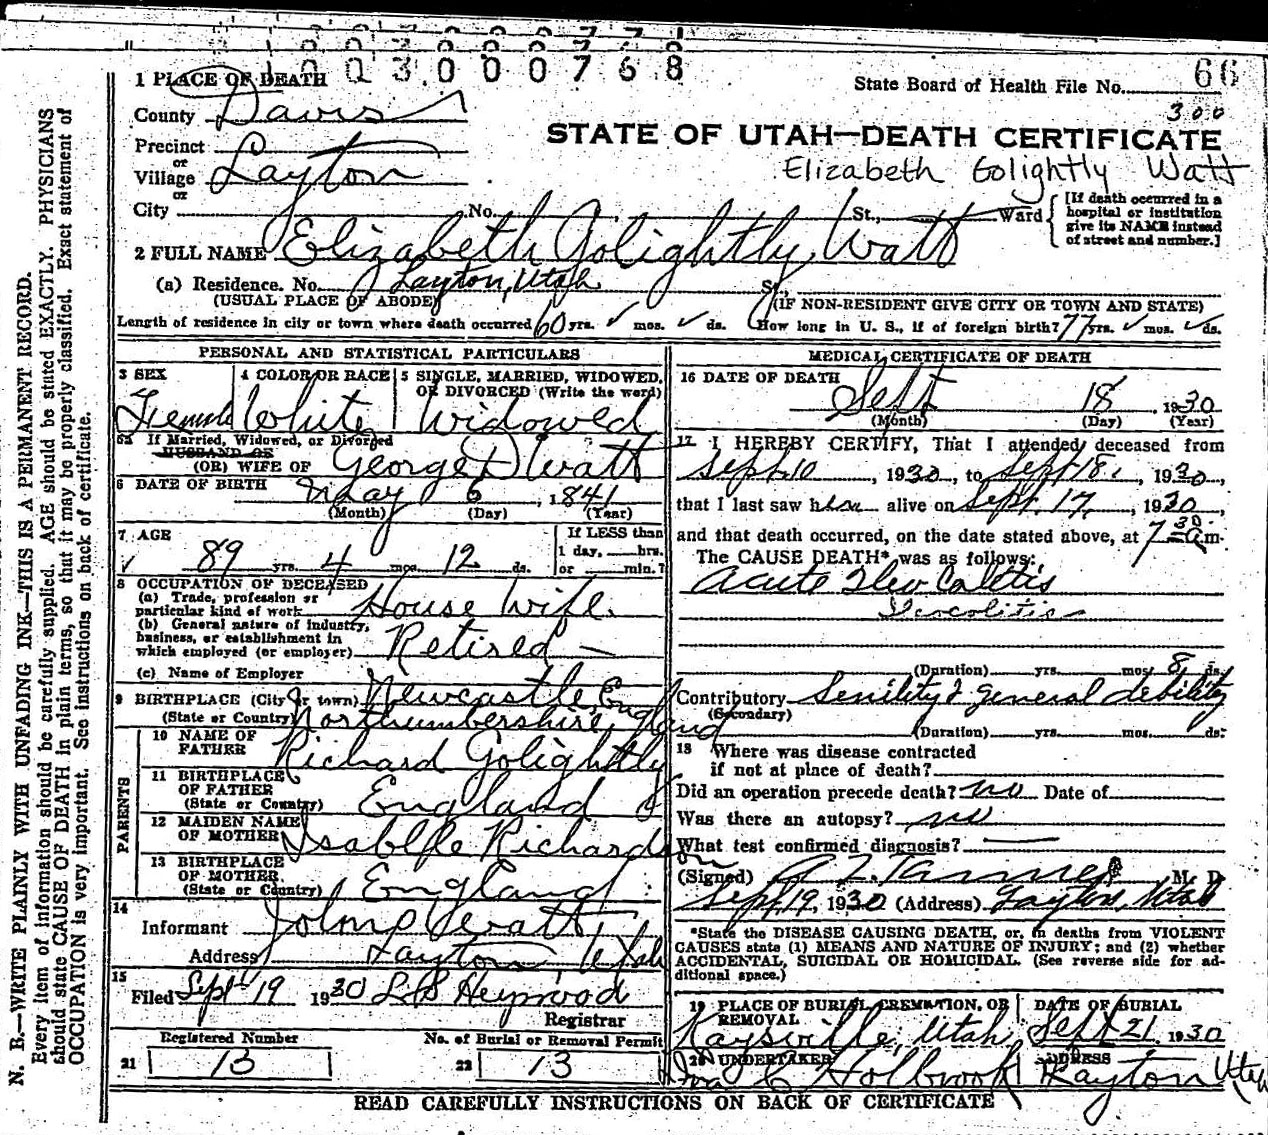 0 0 3 0 0 0 7 6 8
1 PLACE OF DEATH
State Board of Health File No. 66
County Davis
300
STATE OF UTAH—DEATH CERTIFICATE
Precinct
or
Village Layton
Elizabeth Golightly Watt
or
City No. St., Ward
[If death occurred in a hospital or institution give its NAME instead of street and number.]
2 FULL NAME Elizabeth Golightly Watt
(a) Residence. No. Layton, Utah St.,
(USUAL PLACE OF ABODE) (IF NON-RESIDENT GIVE CITY OR TOWN AND STATE)
Length of residence in city or town where death occurred 60 yrs. ✓ mos. ✓ ds. How long in U. S., if of foreign birth? 77 yrs. ✓ mos. ✓ ds.
PERSONAL AND STATISTICAL PARTICULARS
3 SEX 4 COLOR OR RACE 5 SINGLE, MARRIED, WIDOWED, OR DIVORCED (Write the word)
Female White Widowed
5a If Married, Widowed, or Divorced
HUSBAND OF
(OR) WIFE OF George D Watt
6 DATE OF BIRTH May 6, 1841
(Month) (Day) (Year)
7 AGE If LESS than
1 day, hrs.
✓ 89 yrs. 4 mos. 12 ds. or min.?
8 OCCUPATION OF DECEASED
(a) Trade, profession or particular kind of work House Wife
(b) General nature of industry, business, or establishment in which employed (or employer) Retired —
(c) Name of Employer
9 BIRTHPLACE (City or town) Newcastle, Eng
(State or Country) Northumbershire, England
PARENTS
10 NAME OF FATHER Richard Golightly
11 BIRTHPLACE OF FATHER (State or Country) England
12 MAIDEN NAME OF MOTHER Isabelle Richardson
13 BIRTHPLACE OF MOTHER (State or Country) England
14
Informant Watt
Address Layton, Utah
15
Filed Sept 19 1930 Heywood
Registrar
Registered Number No. of Burial or Removal Permit
21 13 22 13
MEDICAL CERTIFICATE OF DEATH
16 DATE OF DEATH
Sept 18, 1930
(Month) (Day) (Year)
17 I HEREBY CERTIFY, That I attended deceased from
Sept. 10, 1930, to Sept. 18, 1930,
that I last saw her alive on Sept. 17, 1930,
and that death occurred, on the date stated above, at 7 30 a m.
The CAUSE DEATH* was as follows:
Acute Ileo Colitis
Ileocolitis
(Duration) yrs. mos. 8 ds.
Contributory Senility & general debility
(Secondary)
(Duration) yrs. mos. ds.
18 Where was disease contracted
if not at place of death?
Did an operation precede death? no Date of
Was there an autopsy? no
What test confirmed diagnosis?
(Signed) A Z. Tanner M. D.
Sept. 19, 1930 (Address) Layton, Utah
*State the DISEASE CAUSING DEATH, or, in deaths from VIOLENT
CAUSES state (1) MEANS AND NATURE OF INJURY; and (2) whether
ACCIDENTAL, SUICIDAL OR HOMICIDAL. (See reverse side for ad-
ditional space.)
19 PLACE OF BURIAL, CREMATION, OR REMOVAL DATE OF BURIAL
Kaysville, Utah Sept 21 1930
20 UNDERTAKER ADDRESS
Ira C Holbrook Layton Utah
READ CAREFULLY INSTRUCTIONS ON BACK OF CERTIFICATE
N. B.—WRITE PLAINLY WITH UNFADING INK—THIS IS A PERMANENT RECORD.
Every item of information should be carefully supplied. AGE should be stated EXACTLY. PHYSICIANS
should state CAUSE OF DEATH in plain terms, so that it may be properly classified. Exact statement of
OCCUPATION is very important. See instructions on back of certificate.